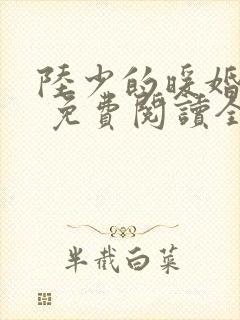 陸少的暖婚
免費閱讀全
半截白菜